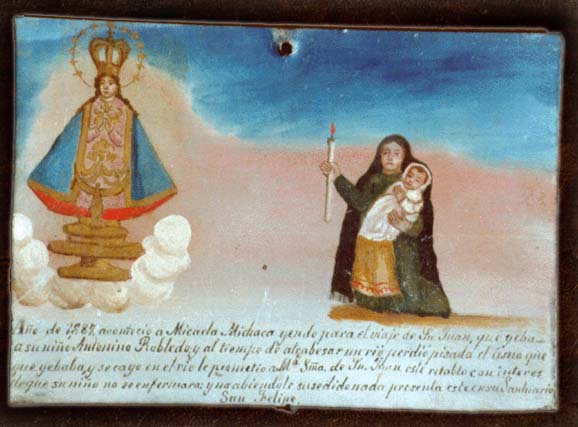 Año de 1887, acontecio a Micaela Michaca yendo para el viaje de Sn Juan, que yeba_
a su niño Antonino Robledo y al tiempo de atrabesar un rio perdio pisada el que
que yebaba, y se cayo en el rio le prometio a Mª Sma. de Sn Juan este retablo con interes
de que su niño no se enfermara; y no abiendole susedido nada presenta este en su Santuario
San Felipe.